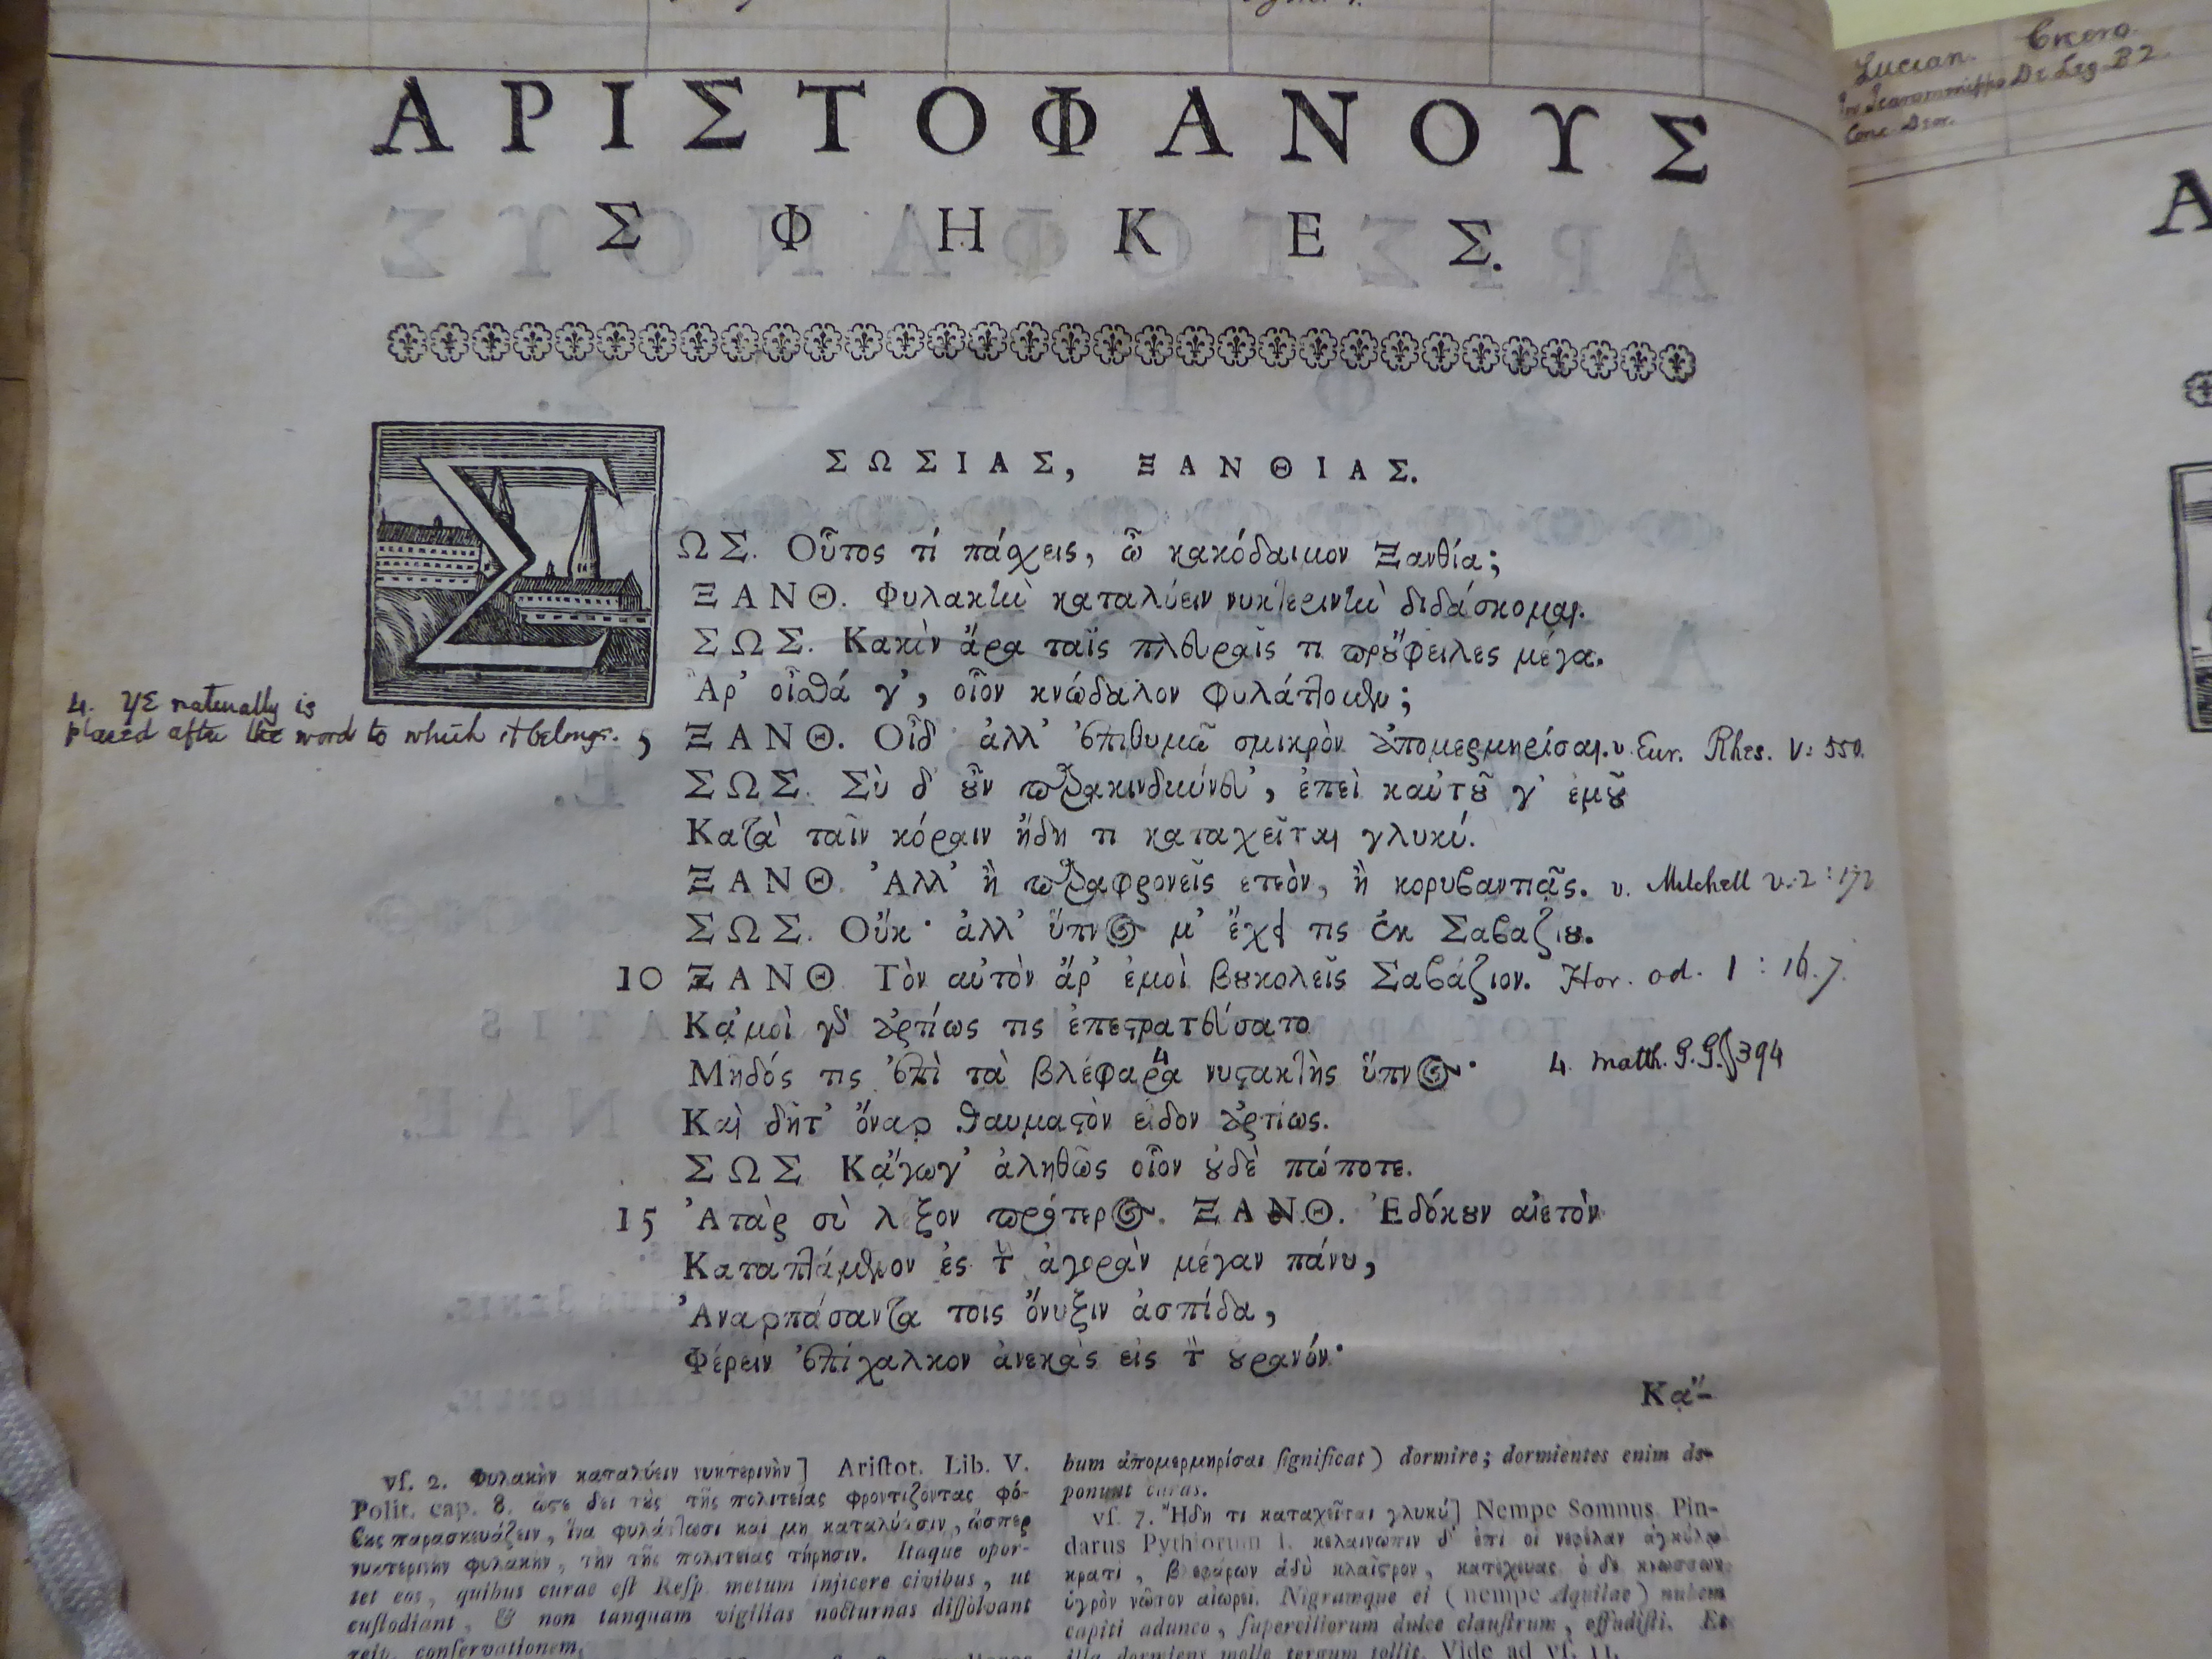 Lucian. Cicero.
De Leg. B 2.
Conc. Deor.
ΑΡΙΣΤΟΦΑΝΟΥΣ
ΣΦΗΚΕΣ.
ΣΩΣΙΑΣ, ΞΑΝΘΙΑΣ.
ΣΩΣ. Οὗτος τί πάσχεις, ὦ κακόδαιμον Ξανθία;
ΞΑΝΘ. Φυλακὴν καταλύειν νυκτερινὴν διδάσκομαι.
ΣΩΣ. Κακὸν ἄρα ταῖς πλευραῖς τι προὔφειλες μέγα.
Ἆρ' οἶσθά γ', οἷον κνώδαλον φυλάττομεν;
4. γε naturally is
placed after the word to which it belongs.
5 ΞΑΝΘ. Οἶδ' ἀλλ' ἐπιθυμῶ σμικρὸν ἀπομερμηρίσαι. v. Eur. Rhes. V: 550.
ΣΩΣ. Σὺ δ' οὖν παρακινδύνευ', ἐπεὶ καὐτοῦ γ' ἐμοῦ
Κατὰ ταῖν κόραιν ἤδη τι καταχεῖται γλυκύ.
ΞΑΝΘ. Ἀλλ' ἢ παραφρονεῖς ἐτεὸν, ἢ κορυβαντιᾷς. v. Mitchell v. 2: 172
ΣΩΣ. Οὔκ· ἀλλ' ὕπνος μ' ἔχει τις ἐκ Σαβαζίου.
10 ΞΑΝΘ. Τὸν αὐτὸν ἄρ' ἐμοὶ βουκολεῖς Σαβάζιον. Hor. od. 1 : 16. 7.
Κᾀμοὶ γὰρ ἀρτίως τις ἐπεστρατεύσατο
Μῆδός τις ἐπὶ τὰ βλέφαρα 4 νυστακτὴς ὕπνος· 4. Matth. G. G. § 394
Καὶ δῆτ' ὄναρ θαυμαστὸν εἶδον ἀρτίως.
ΣΩΣ. Κᾄγωγ' ἀληθῶς οἷον οὐδὲ πώποτε.
15 Ἀτὰρ σὺ λέξον πρότερος. ΞΑΝΘ. Ἐδόκουν αἰετὸν
Καταπτάμενον ἐς τὴν ἀγορὰν μέγαν πάνυ,
Ἀναρπάσαντα τοῖς ὄνυξιν ἀσπίδα,
Φέρειν ἐπίχαλκον ἀνεκὰς εἰς τὸν οὐρανόν·
Κᾄ-
vſ. 2. Φυλακὴν καταλύειν νυκτερινὴν] Ariſtot. Lib. V.
Polit. cap. 8. ὥστε δεῖ τοὺς τῆς πολιτείας φροντίζοντας φό-
βους παρασκευάζειν, ἵνα φυλάττωσι καὶ μὴ καταλύωσιν, ὥσπερ
νυκτερινὴν φυλακὴν, τὴν τῆς πολιτείας τήρησιν. Itaque opor-
tet eos, quibus curae eſt Reſp. metum injicere civibus, ut
cuſtodiant, & non tanquam vigilias nocturnas diſſolvant
reip. conſervationem.
bum ἀπομερμηρίσαι ſignificat) dormire; dormientes enim de-
ponunt curas.
vſ. 7. Ἤδη τι καταχεῖται γλυκύ] Nempe Somnus. Pin-
darus Pythiorum I. κελαινῶπιν δ' ἐπί οἱ νεφέλαν ἀγκύλῳ
κρατὶ, βλεφάρων ἁδὺ κλαΐστρον, κατέχευας· ὁ δὲ κνώσσων
ὑγρὸν νῶτον αἰωρεῖ. Nigramque ei (nempe Aquilae) nubem
capiti adunco, ſuperciliorum dulce clauſtrum, effudiſti. Et
illa dormiens molle tergum tollit. Vide ad vſ. 11.